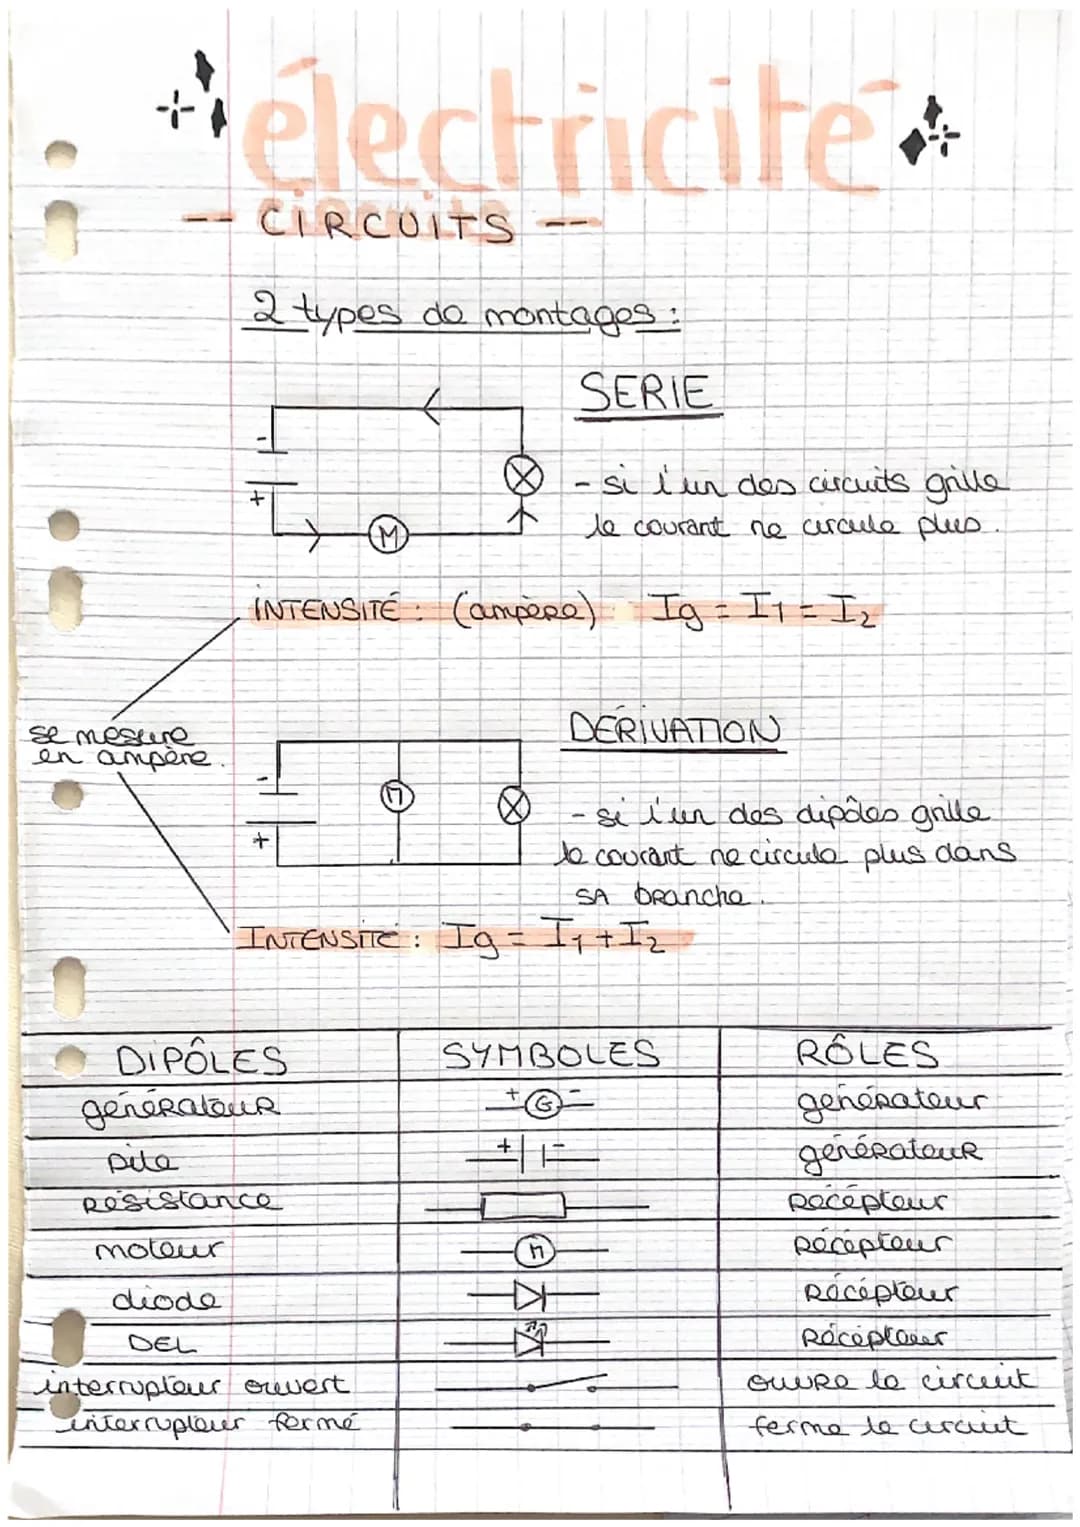 électricité
-- CIRCUITS --
2 types de montages :
SERIE
- si l'un des circuits grille
le courant ne circule plus.
-
+
M
INTENSITÉ : (ampère) Ig = I1 = I2
se mesure
en ampère.
DÉRIVATION
-
+
M
- si l'un des dipôles grille
le courant ne circule plus dans
SA branche.
INTENSITÉ : Ig = I1 + I2
DIPÔLES SYMBOLES RÔLES
générateur + G - générateur
pile + - générateur
résistance récepteur
moteur M récepteur
diode récepteur
DEL récepteur
interrupteur ouvert ouvre le circuit
interrupteur fermé ferme le circuit